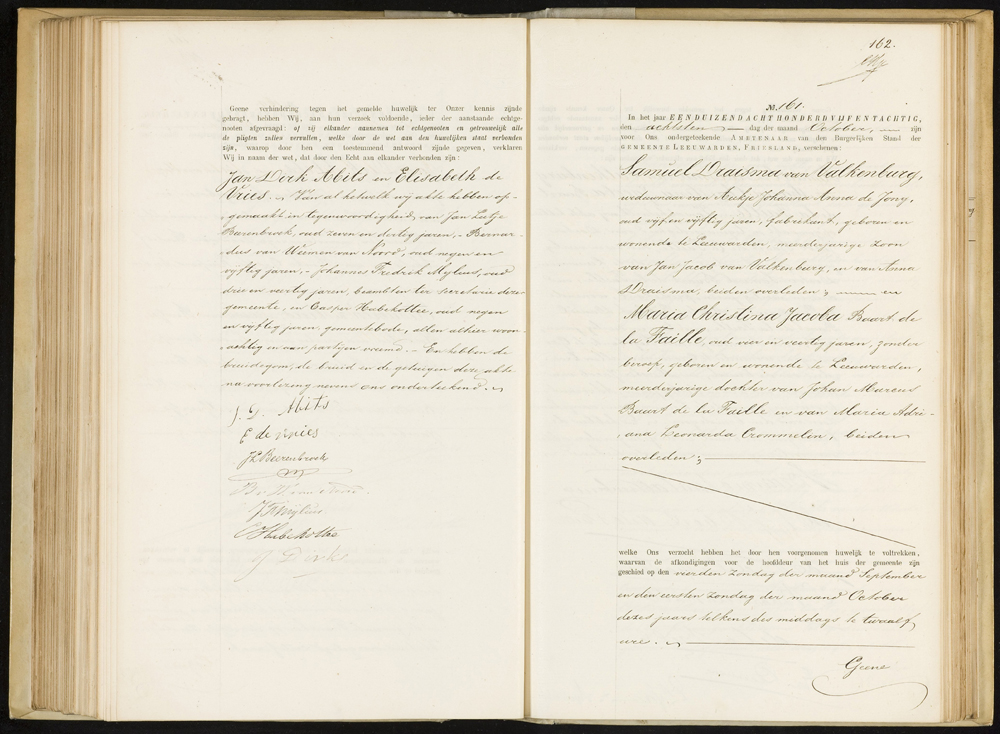 Geene verhindering tegen het gemelde huwelijk ter Onzer kennis zijnde
gebragt, hebben Wij, aan hun verzoek voldoende, ieder der aanstaande echtge-
nooten afgevraagd: of zij elkander aannemen tot echtgenooten en getrouwelijk alle
de pligten zullen vervullen, welke door de wet aan den huwelijken staat verbonden
zijn, waarop door hen een toestemmend antwoord zijnde gegeven, verklaren
Wij in naam der wet, dat door den Echt aan elkander verbonden zijn:
Jan Dirk Abits en Elisabeth de
Vries. Van al hetwelk wij akte hebben op-
gemaakt in tegenwoordigheid van Jan Eeltje
Beerenbrock, oud zeven en dertig jaren, - Bernar-
dus van Weemen van Noord, oud negen en
vyftig jaren, - Johannes Fredrik Mylius, oud
drie en veertig jaren, beambten ter secretarie dezer
gemeente, en Casper Habekottee, oud negen
en vyftig jaren, gemeentebode, allen alhier woon-
achtig en aan partyen vreemd. - En hebben de
bruidegom, de bruid en de getuigen deze akte
na voorlezing nevens ons onderteekend.
J. D. Abits
E de vries
JE Beerenbrock
B v W van Noord.
J F Mylius
C Habekotte
J Dirks
162.
№ 161.
In het jaar EENDUIZEND ACHTHONDERD VIJFENTACHTIG,
den achtsten dag der maand October, zijn
voor Ons ondergeteekende AMBTENAAR van den Burgerlijken Stand der
GEMEENTE LEEUWARDEN, FRIESLAND, verschenen:
Samuel Draisma van Valkenburg,
weduwnaar van Aukje Johanna Anna de Jong,
oud vyf en vyftig jaren, fabrikant, geboren en
wonende te Leeuwarden, meerderjarige zoon
van Jan Jacob van Valkenburg, en van Anna
Draisma, beiden overleden; en
Maria Christina Jacoba Baart de
la Faille, oud vier en veertig jaren, zonder
beroep, geboren en wonende te Leeuwarden,
meerderjarige dochter van Johan Marcus
Baart de la Faille en van Maria Adri-
ana Leonarda Crommelin, beiden
overleden;
welke Ons verzocht hebben het door hen voorgenomen huwelijk te voltrekken,
waarvan de afkondigingen voor de hoofddeur van het huis der gemeente zijn
geschied op den vierden Zondag der maand September
en den eersten Zondag der maand October
dezes jaars telkens des middags te twaalf
ure.
Geene